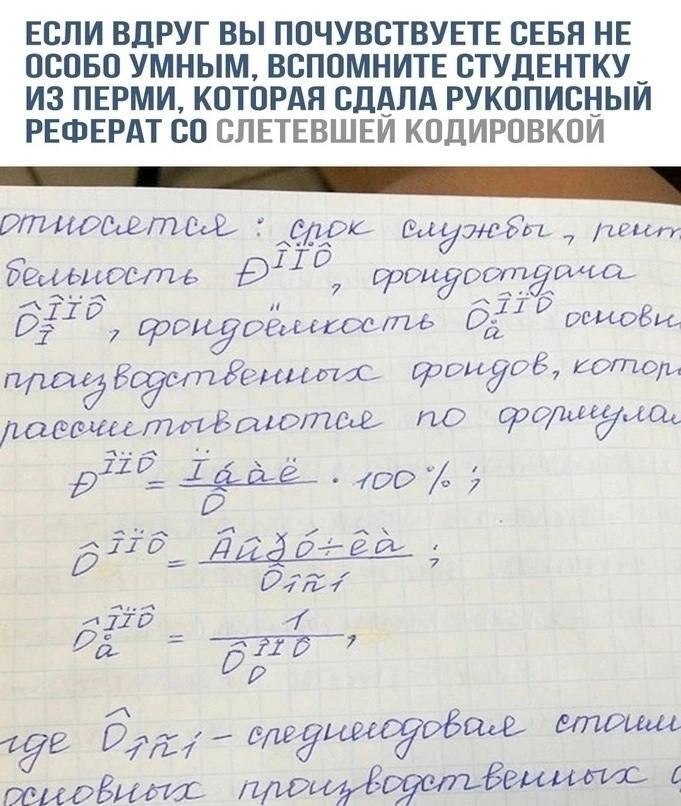 ЕСЛИ ВДРУГ ВЫ ПОЧУВСТВУЕТЕ СЕБЯ НЕ
ОСОБО УМНЫМ, ВСПОМНИТЕ СТУДЕНТКУ
ИЗ ПЕРМИ, КОТОРАЯ СДАЛА РУКОПИСНЫЙ
РЕФЕРАТ СО СЛЕТЕВШЕЙ КОДИРОВКОЙ
относятся: срок службы, рент
бельность Ð ÎÏÔ, фондоотдача
Ô ÎÏÔ î, фондоёмкость Ô ÎÏÔ å основн
производственных фондов, котор
рассчитываются по формулам
Ð ÎÏÔ = Ïáàë / Ô · 100%;
Ô ÎÏÔ = Âûðó÷êà / Ôîñí;
Ô ÎÏÔ å = 1 / Ô ÎÏÔ О,
где Ôîñí – среднегодовая стоим
основных производственных